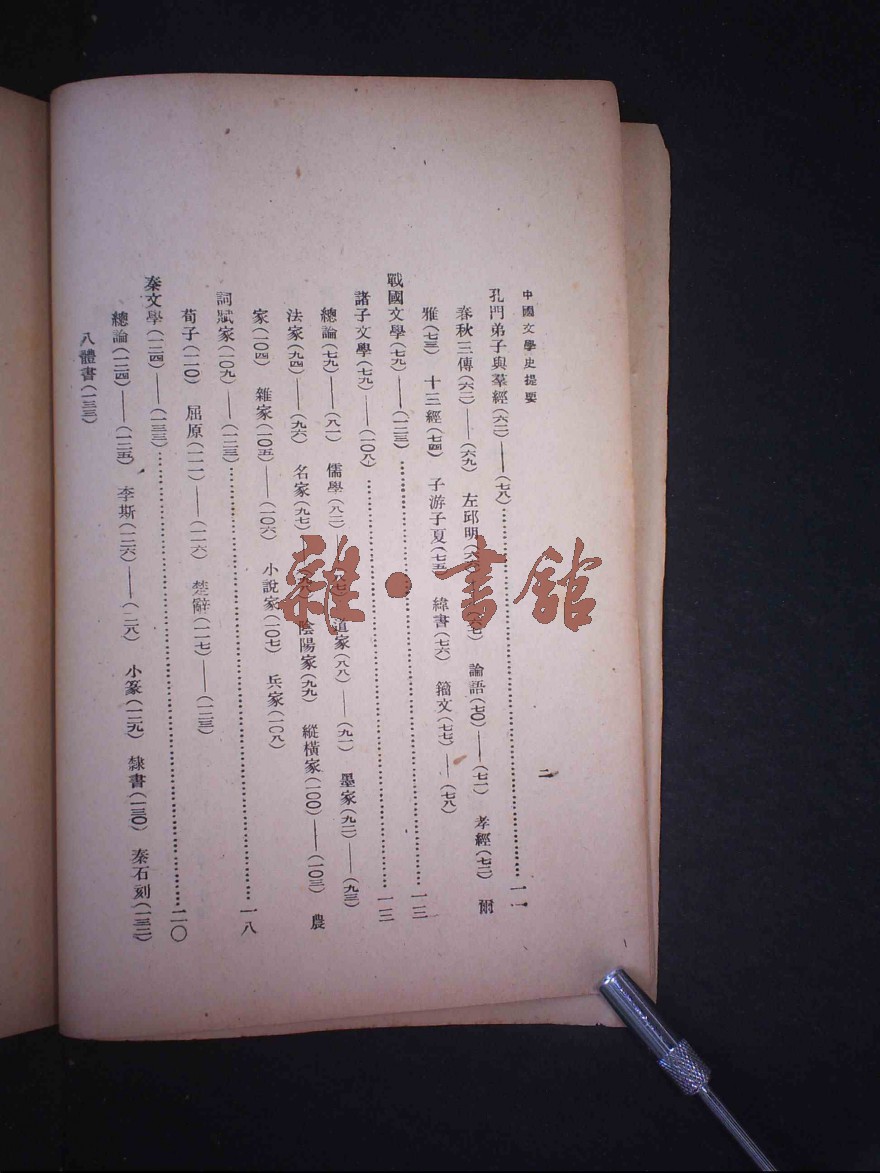 中國文學史提要
二
孔門弟子與羣經(六二)——(七八)……一一
春秋三傳(六二)——(六九) 左邱明(六六)——(六七) 論語(七〇)——(七一) 孝經(七二) 爾
雅(七三) 十三經(七四) 子游子夏(七五) 緯書(七六) 籀文(七七)——(七八)
戰國文學(七九)——(一二三)……一三
諸子文學(七九)——(一〇八)……一三
總論(七九)——(八一) 儒學(八二)——(八七) 道家(八八)——(九一) 墨家(九二)——(九三)
法家(九四)——(九六) 名家(九七)——(九八) 陰陽家(九九) 縱橫家(一〇〇)——(一〇三) 農
家(一〇四) 雜家(一〇五)——(一〇六) 小說家(一〇七) 兵家(一〇八)
詞賦家(一〇九)——(一二三)……一八
荀子(一一〇) 屈原(一一一)——(一一六) 楚辭(一一七)——(一二三)
秦文學(一二四)——(一三三)……二〇
總論(一二四)——(一二五) 李斯(一二六)——(一二八) 小篆(一二九) 隸書(一三〇) 秦石刻(一三二)
八體書(一三三)
雜·書館